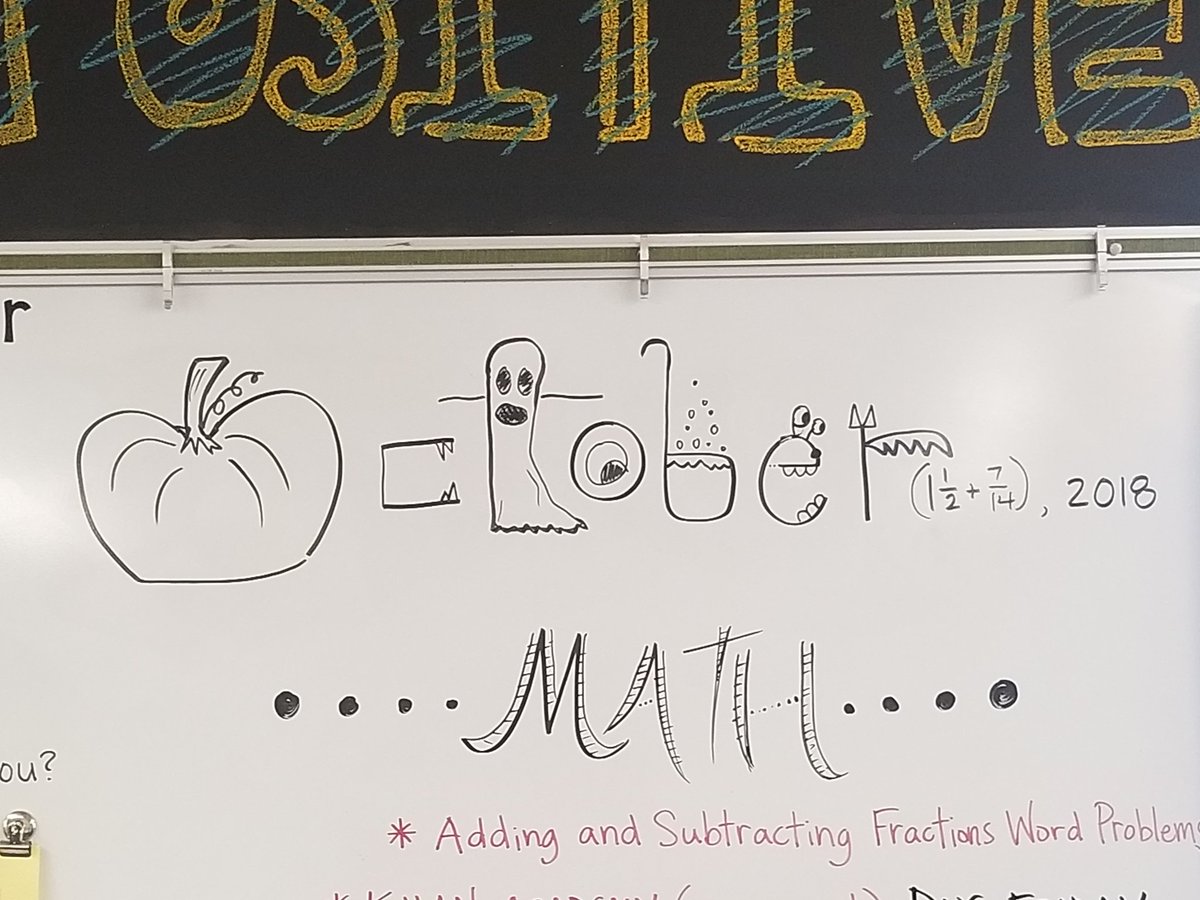 OSITIVE
r
October (1 1/2 + 7/14), 2018
MATH
ou?
* Adding and Subtracting Fractions Word Problems